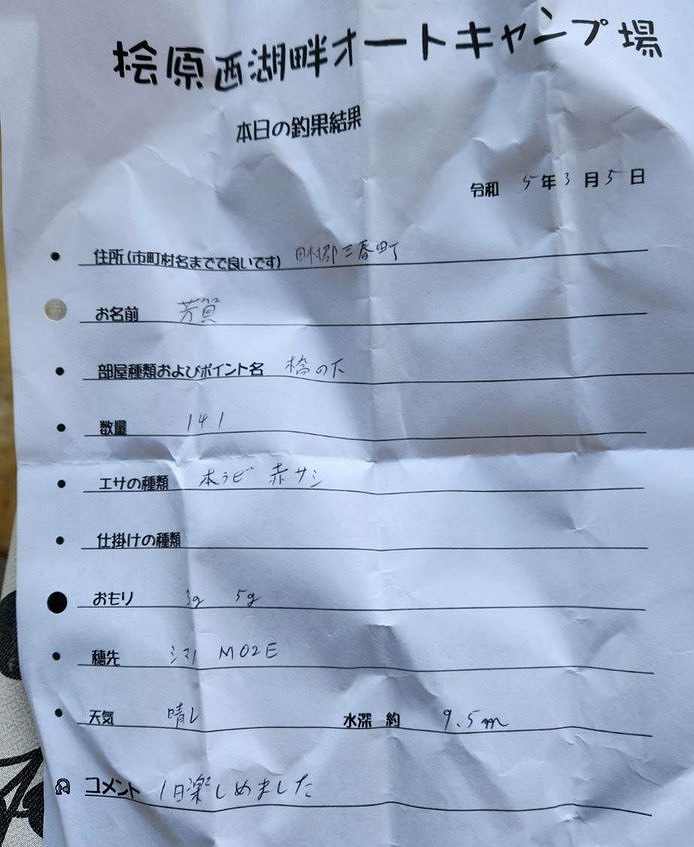 桧原西湖畔オートキャンプ場
本日の釣果結果
令和 5年3月5日
住所(市町村名までで良いです) 田村郡三春町
お名前 芳賀
部屋種類およびポイント名 橋の下
数量 141
エサの種類 本ラビ 赤サシ
仕掛けの種類
おもり 3g 5g
穂先 M02E
天気 晴し 水深 約 9.5m
コメント 1日楽しめました